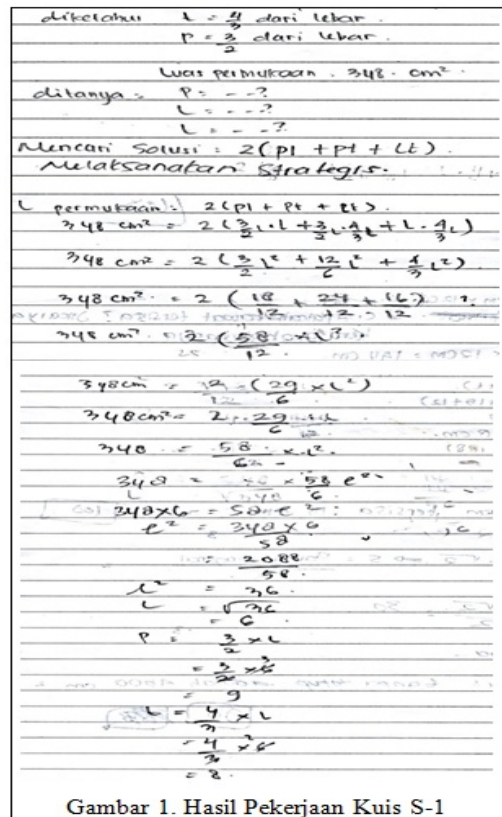 diketahui L = 4/3 dari lebar.
P = 3/2 dari lebar.
Luas permukaan . 348 . cm²
ditanya = P = - - ?
L = - - ?
L = - - ?
Mencari Solusi : 2(Pl + Pt + Lt).
Melaksanakan Strategis.
L permukaan = 2(Pl + Pt + Lt).
348 cm² = 2(3/2 L · L + 3/2 L · 4/3 L + L · 4/3 L)
348 cm² = 2(3/2 L² + 12/6 L² + 4/3 L²)
348 cm² = 2(18/12 + 24/12 + 16/12)
348 cm² 2(58/12 × L²
348 cm² = 12 = (29/6 × L²)
348 cm² = 2 . 29/6
348 = 58/6 × L².
348 = 58/6 e²
348 × 6 = 58 e²
e² = 348 × 6/58
= 2088/58
L² = 36
L = √36
= 6
P = 3/2 × L
= 3/2 × 6
= 9
L = 4/3 × L
= 4/3 × 6
= 8.
Gambar 1. Hasil Pekerjaan Kuis S-1